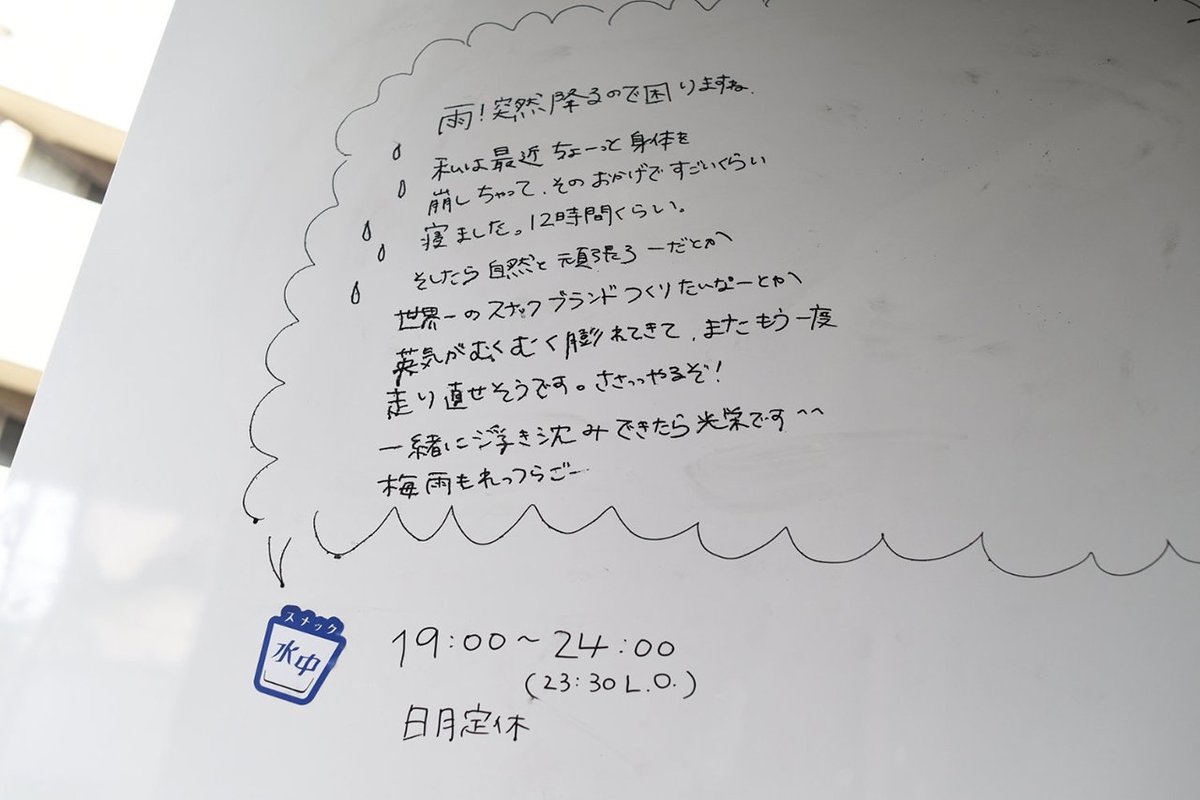 雨！突然降るので困りますね
私は最近ちょーっと身体を
崩しちゃって、そのおかげですごいくらい
寝ました。12時間くらい。
そしたら自然と頑張ろーだとか
世界一のスナックブランドつくりたいなーとか
英気がむくむく膨れてきて、またもう一度
走り直せそうです。ささっつやるぞ！
一緒に浮き沈みできたら光栄です^^
梅雨もれっつらごー
スナック
水中
19:00～24:00
(23:30 L.O.)
日月定休